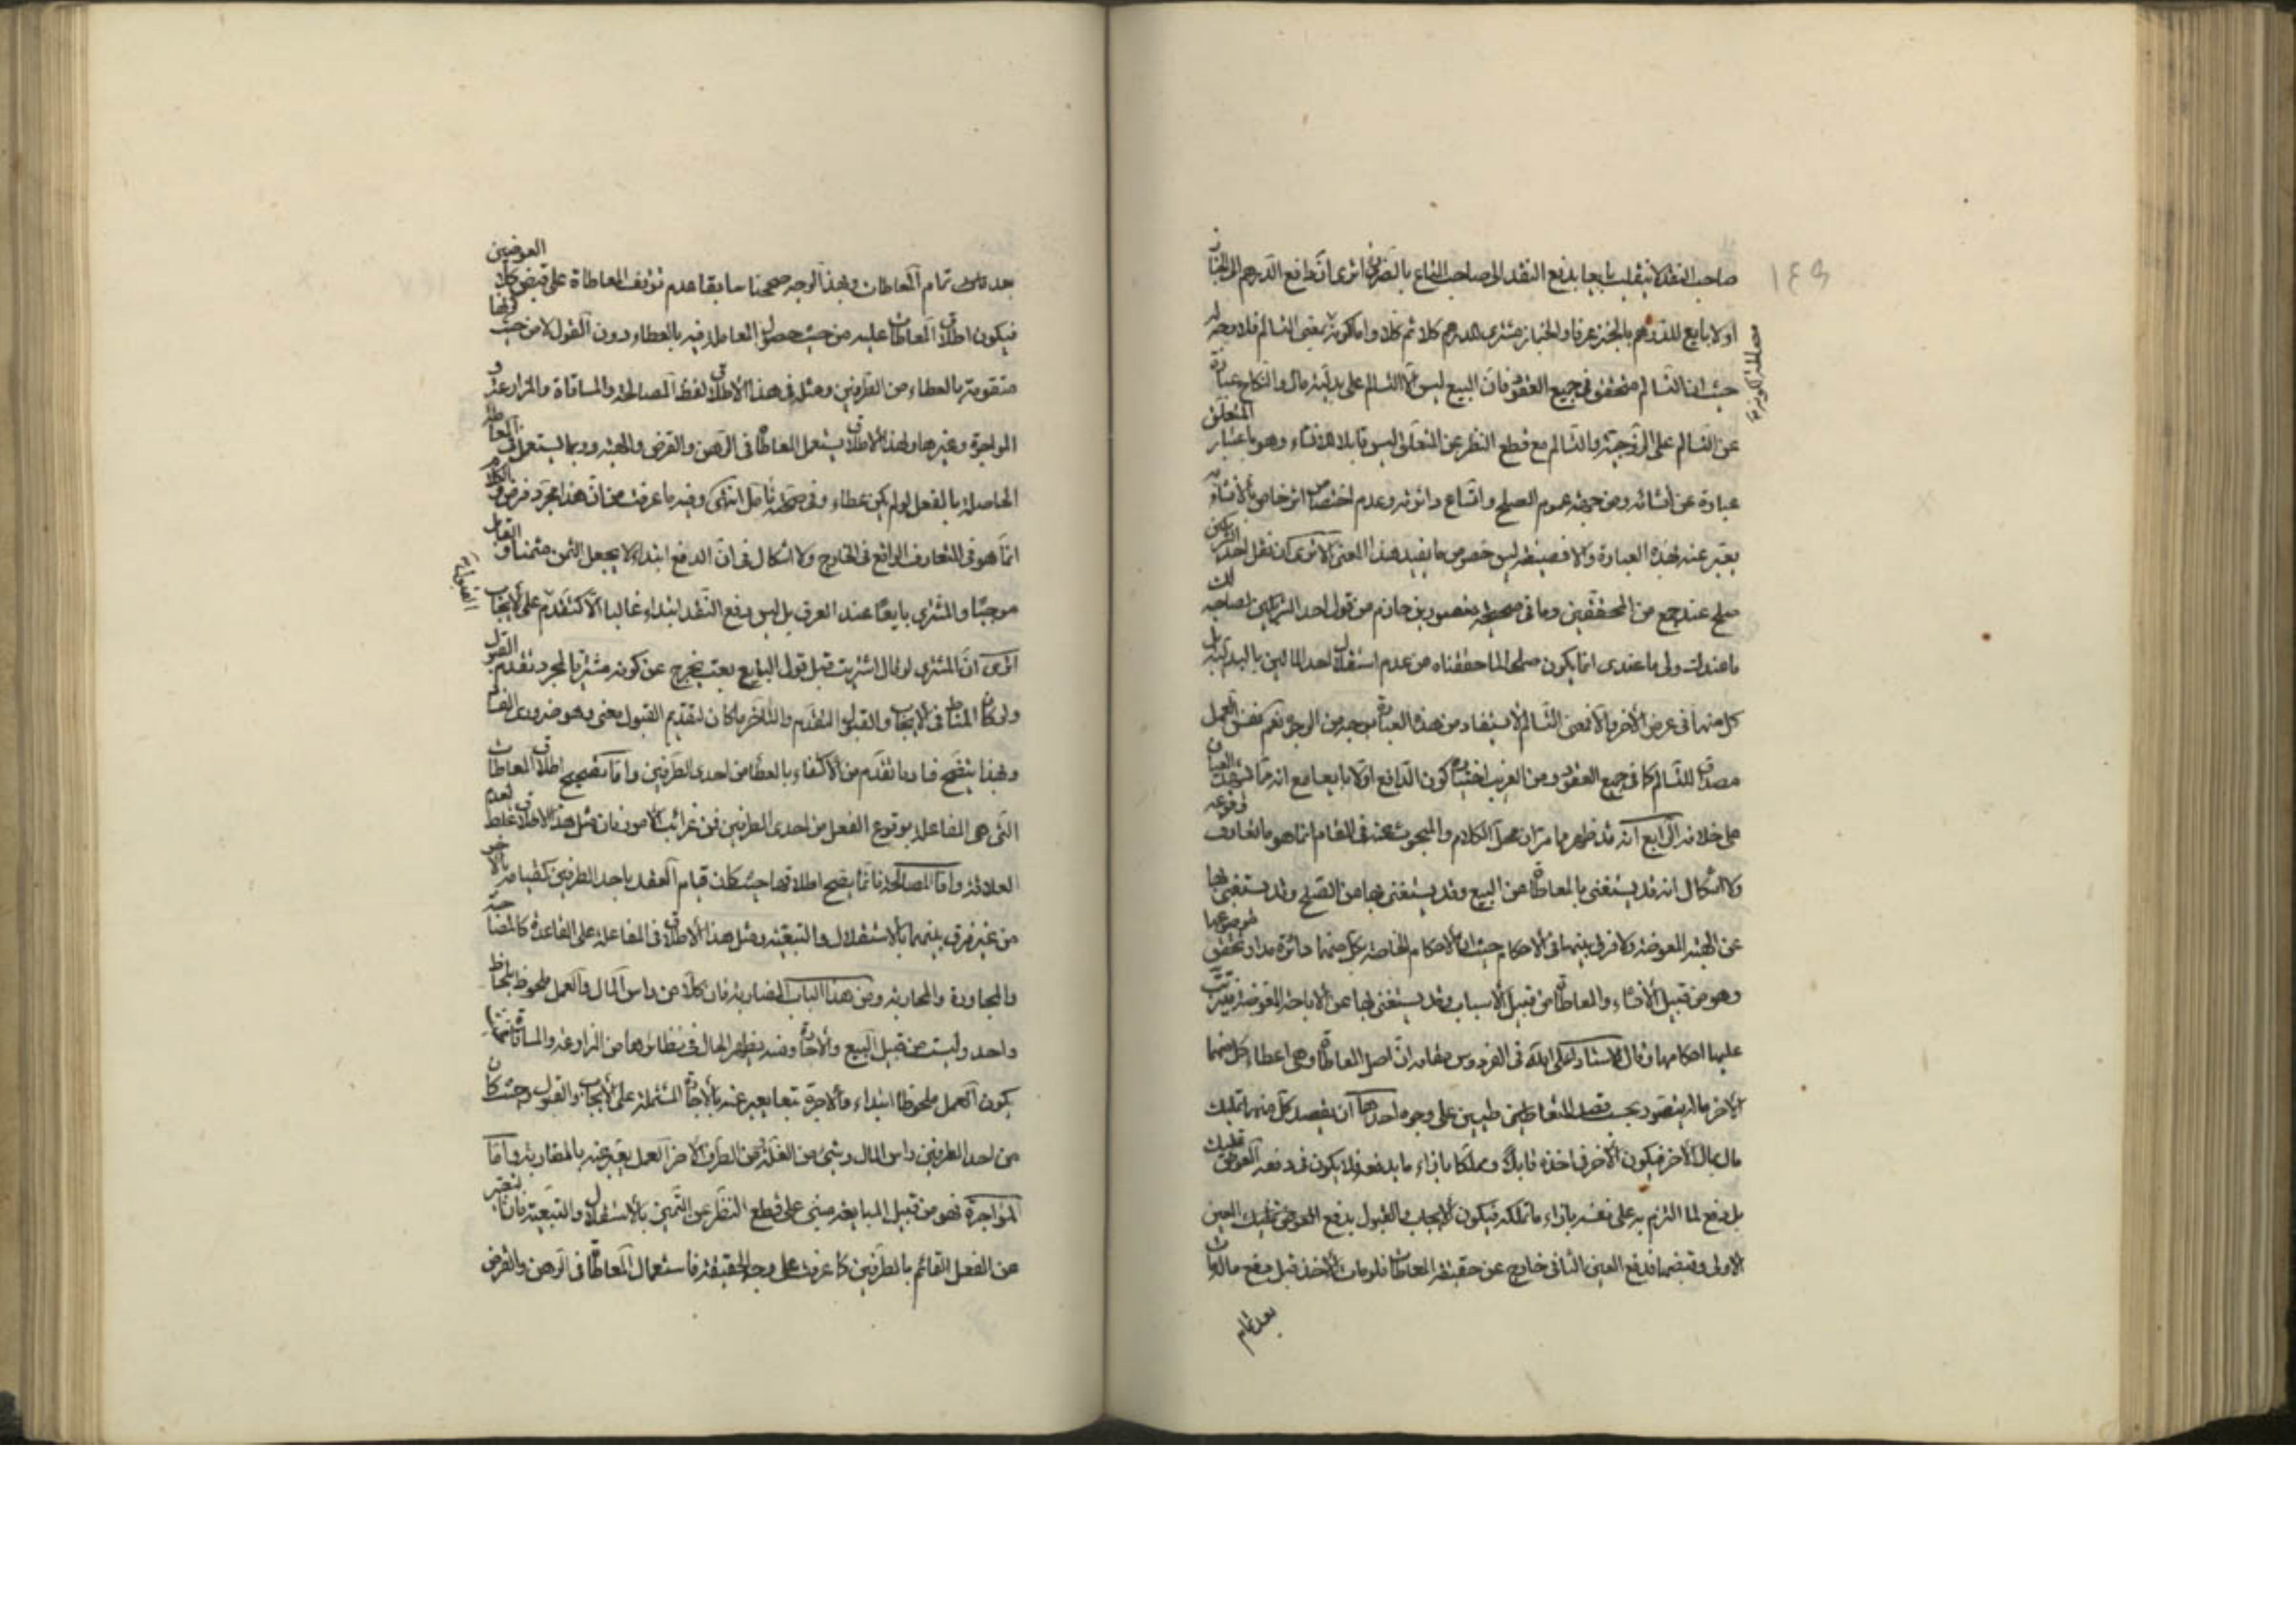 ١٤٩
صاحب النقد لا ينقلب بايعا بدفع النقد الى صاحب المتاع بالضرورة اترى ان دافع الدرهم الى الخباز
اولا بايع للدرهم بالخبز عرفا والخباز مشترى للدرهم كلا ثم كلا واما كونه بمعنى التسالم فلا وجه له
حيث ان التسالم متحقق في جميع العقود فان البيع ليس الا التسالم على بدلية مال والنكاح عبارة
عن التسالم على الزوجية والتسالم مع قطع النظر عن المتعلق ليس قابلا للانشاء وهو باعتبار المتعلق
عبارة عن انشائه ومن جهة عموم الصلح واتساع دائرته وعدم اختصاص اثر خاص بالانشاء به
يعبر عنه بهذه العبارة والا فصيغته ليس خصوص ما يفيد هذا المعنى الا ترى ان نقل احد الشريكين
صلح عند جمع من المحققين وما في صحيحة منصور بن حازم من قول احد الشريكين لصاحبه لك
ما عندك ولى ما عندى انما يكون صلحا لما حققناه من عدم استقلال احد المالين بالبدلية بل
كل منهما في عرض الآخر والا فمعنى التسالم لا يستفاد من هذه العبارة بوجه من الوجوه نعم نفس العمل
مصداق للتسالم كما في جميع العقود ومن الغريب اختياره كون الدافع اولا بايعا مع انه مما يشهد العيان
على خلافه الرابع انه قد ظهر مما مر ان محل الكلام والمبحوث عنه في المقام انما هو ما تعارف وقوعه
ولا اشكال انه قد يستغنى بالمعاطاة عن البيع وقد يستغنى بها عن الصلح وقد يستغنى بها
عن الهبة المعوضة ولا فرق بينهما في الاحكام حيث ان الاحكام الخاصة بكل منهما دائرة مدار تحقق موضوعها
وهو من قبيل الانشاء والمعاطاة من قبيل الاسباب وقد يستغنى بها عن الاباحة المعوضة فيترتب
عليها احكامها وقال الاستاد اعلى الله في الفردوس مقامه ان اصل المعاطاة وهي اعطاء كل منهما
الآخر ماله يتصور بحسب قصد المتعاطيين على وجوه احدها ان يقصد كل منهما تمليك
مال بمال الآخر فيكون الآخر في اخذه قابلا ومملكا بازاء ما يدفعه فلا يكون في دفعه العوض تمليك
بل دفع لما التزم به على نفسه بازاء ما تملكه فيكون الايجاب والقبول بدفع العوض تمليك العين
الاولى وقبضها فدفع العين الثانى خارج عن حقيقة المعاطات فلو مات الآخذ قبل دفع ماله مات
بعد تمام
بعد تمام المعاطات وبهذا الوجه صححنا سابقا عدم توقف المعاطاة على قبض كلا العوضين
فيكون اطلاق المعاطات عليه من حيث حصول المعاملة فيه بالعطاء دون القول لا من حيث كونها
متقومة بالعطاء من الطرفين ومثله في هذا الاطلاق لفظ المصالحة والمساقاة والمزارعة و
المواجرة وغيرها ولهذا الاطلاق يستعمل المعاطاة في الرهن والقرض والهبة وربما يستعمل في المعاملة
الحاصلة بالفعل ولو لم يكن عطاء وفي صحته تأمل انتهى وفيه ما عرفت من ان هذا مجرد فرض والكلام
انما هو في المتعارف الواقع في الخارج ولا اشكال في ان الدفع ابتداء لا يجعل الثمن مثمنا والقابل
موجبا والمشترى بايعا عند العرف بل ليس دفع النقد ابتداء غالبا الا كتقدم القبول على الايجاب
اترى ان المشترى لو قال اشتريت قبل قول البايع بعت يخرج عن كونه مشتريا بمجرد تقدم القول
ولو كان المناط في الايجاب والقبول التقدم والتأخر ما كان لتقديم القبول معنى وهو ضرورى الفساد
وبهذا يتضح فساد ما تقدم من الاكتفاء بالعطاء من احدى الطرفين واما تصحيح اطلاق المعاطات
التى هى المفاعلة بوقوع الفعل من احدى الطرفين فمن غرائب الامور فان مثل هذا الاطلاق غلط لعدم
العلاقة واما المصالحة فانما يصح اطلاقها حيث كان قيام العقد باحد الطرفين كقيامه بالآخر
من غير فرق بينهما بالاستقلال والتبعية ومثل هذا الاطلاق في المفاعلة على القاعدة كالمضاحبة
والمجاورة والمحاربة ومن هذا الباب المضاربة فان كلا من راس المال والعمل ملحوظ بلحاظ
واحد وليست من قبيل البيع والاجارة ومنه يظهر الحال في نظائرها من المزارعة والمساقاة
يكون العمل ملحوظا ابتداء والاجرة تبعا يعبر عنه بالاجارة المشتملة على الايجاب والقبول وحيث كان
من احد الطرفين راس المال وشئ من الغلة ومن الطرف الآخر العمل يعبر عنه بالمضاربة واما
المواجرة فهو من قبيل المبايعة مبنى على قطع النظر عن التميز بالاستقلال والتبعية فانا نعبر
عن الفعل القائم بالطرفين كما عرفت على وجه الحقيقة فاستعمال المعاطاة في الرهن والقرض